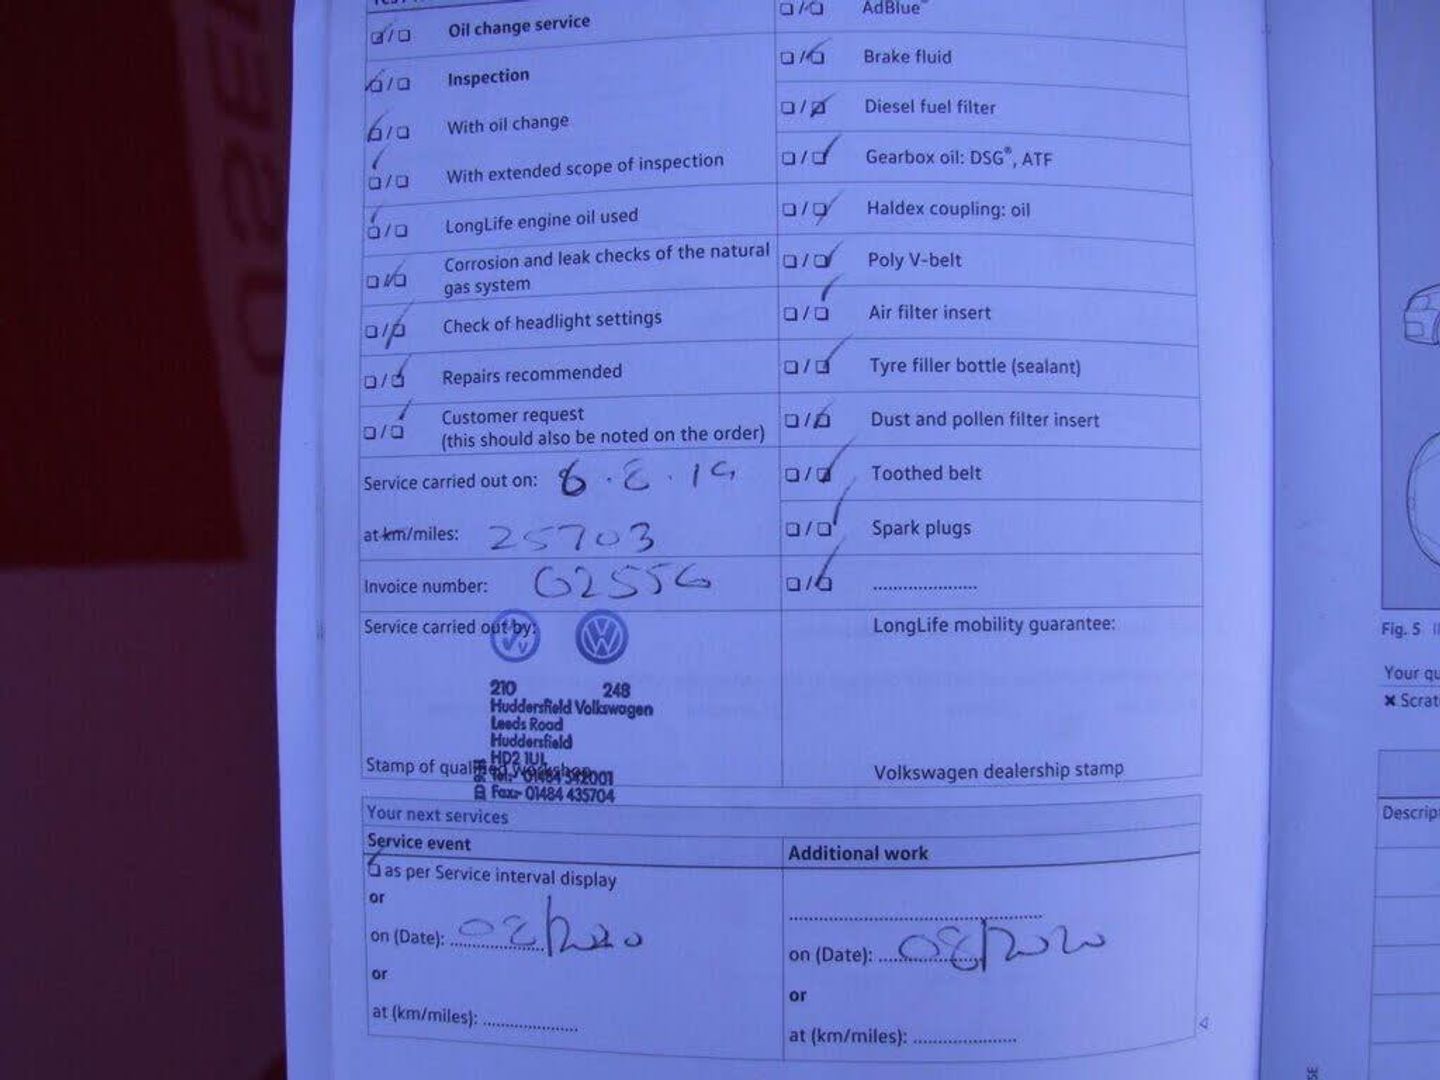 Oil change service
Inspection
With oil change
With extended scope of inspection
LongLife engine oil used
Corrosion and leak checks of the natural
gas system
Check of headlight settings
Repairs recommended
Customer request
(this should also be noted on the order)
Service carried out on: 6.8.19
at km/miles: 25703
Invoice number: 62556
Service carried out by:
210 248
Huddersfield Volkswagen
Leeds Road
Huddersfield
HD2 1UL
Stamp of qualified workshop
Tel:- 01484 542001
Fax:- 01484 435704
AdBlue®
Brake fluid
Diesel fuel filter
Gearbox oil: DSG®, ATF
Haldex coupling: oil
Poly V-belt
Air filter insert
Tyre filler bottle (sealant)
Dust and pollen filter insert
Toothed belt
Spark plugs
LongLife mobility guarantee:
Volkswagen dealership stamp
Your next services
Service event
as per Service interval display
or
on (Date): 08/2020
or
at (km/miles):
Additional work
on (Date): 08/2020
or
at (km/miles):
Fig. 5
Your qu
× Scrat
Descrip